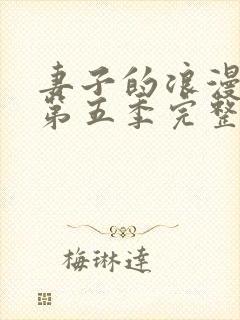 妻子的浪漫
第五季完整
梅琳達